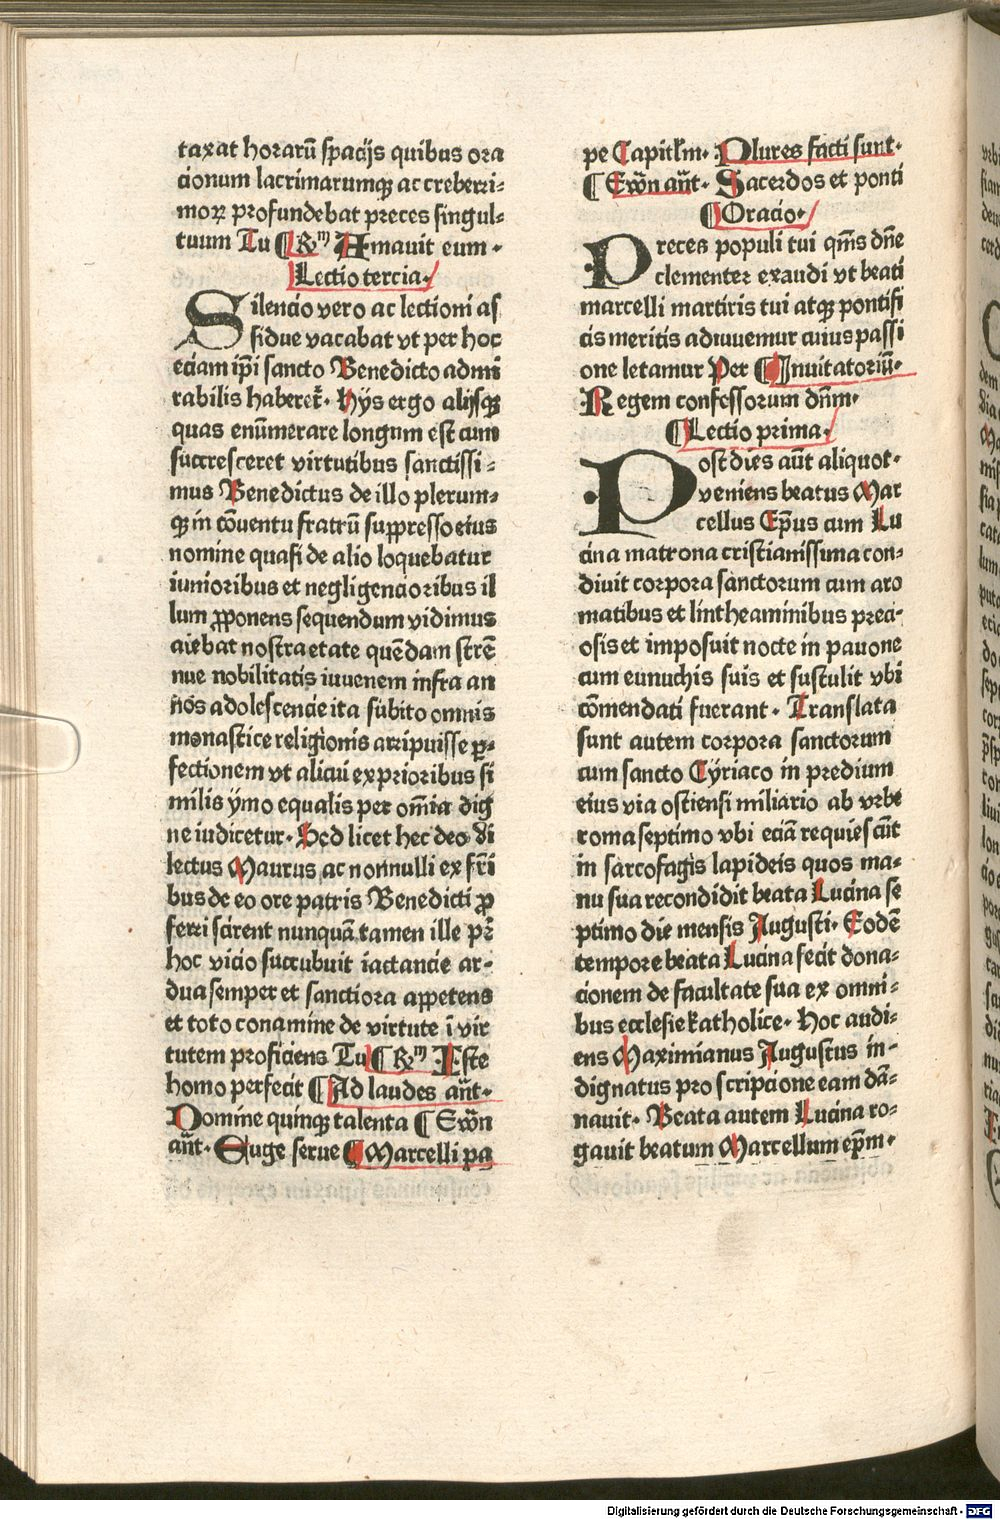 taxat horarū spacijs quibus ora
cionum lacrimarumqꝫ ac creberri⸗
moꝝ profundebat preces singul⸗
tuum Tu ¶ ℟ᵐ Amauit eum ·
Lectio tercia·
Silencio vero ac lectioni as
sidue vacabat vt per hoc
eciam ip̄i sancto Benedicto admi
rabilis haberet᷑· Hÿs ergo alijsqꝫ
quas enūmerare longum est cum
succresceret virtutibus sanctissi⸗
mus Benedictus de illo plerum⸗
qꝫ in cōuentu fratrū suppresso eius
nomine quasi de alio loquebatur
iunioribus et negligencioribus il
lum ꝓponens sequendum vidimus
aiebat nostra etate quēdam strē
nue nobilitatis iuuenem infra an
nōs adolescencie ita subito omnis
monastice religionis arripuisse ꝑ⸗
fectionem vt alicui ex prioribus si
milis ÿmo equalis per om̄ia dig
ne iudicetur· Sed licet hec deo di
lectus Maurus ac nonnulli ex fr̄i
bus de eo ore patris Benedicti ꝓ
ferri scirent nunquā tamen ille pr̄
hoc vicio succubuit iactancie ar⸗
dua semper et sanctiora appetens
et toto conamine de virtute ī vir
tutem proficiens Tu ¶ ℟ᵐ Iste
homo perfecit ¶ Ad laudes an̄t·
Domine quinqꝫ talenta ¶ Ew̄n
an̄t· Euge serue ¶ Marcelli pa
pe Capitl̄m· Plures facti sunt·
¶ Ew̄n an̄t· Sacerdos et ponti
¶ Oracio·
Preces populi tui qm̄s dn̄e
clementer exaudi vt beati
marcelli martiris tui atqꝫ pontifi
cis meritis adiuuemur cuius passi
one letamur Per ¶ Inuitatoriū·
Regem confessorum dn̄m·
¶ Lectio prima·
Post dies aūt aliquot·
veniens beatus Mar
cellus Ep̄us cum Lu
cina matrona cristianissima con⸗
diuit corpora sanctorum cum aro
matibus et lintheaminibus preci⸗
osis et imposuit nocte in pauone
cum eunuchis suis et sustulit vbi
cōmendati fuerant · Translata
sunt autem corpora sanctorum
cum sancto Cÿriaco in predium
eius via ostiensi miliario ab vrbe
roma septimo vbi eciā requiescūt
in sarcofagis lapideis quos ma⸗
nu sua recondidit beata Lucina se
ptimo die mensis Augusti· Eodē
tempore beata Lucina fecit dona⸗
cionem de facultate sua ex omni⸗
bus ecclesie katholice· Hoc audi⸗
ens Maximianus Augustus in⸗
dignatus pro scripcione eam dā⸗
nauit· Beata autem Lucina ro⸗
gauit beatum Marcellum ep̄m·
Digitalisierung gefördert durch die Deutsche Forschungsgemeinschaft - DFG